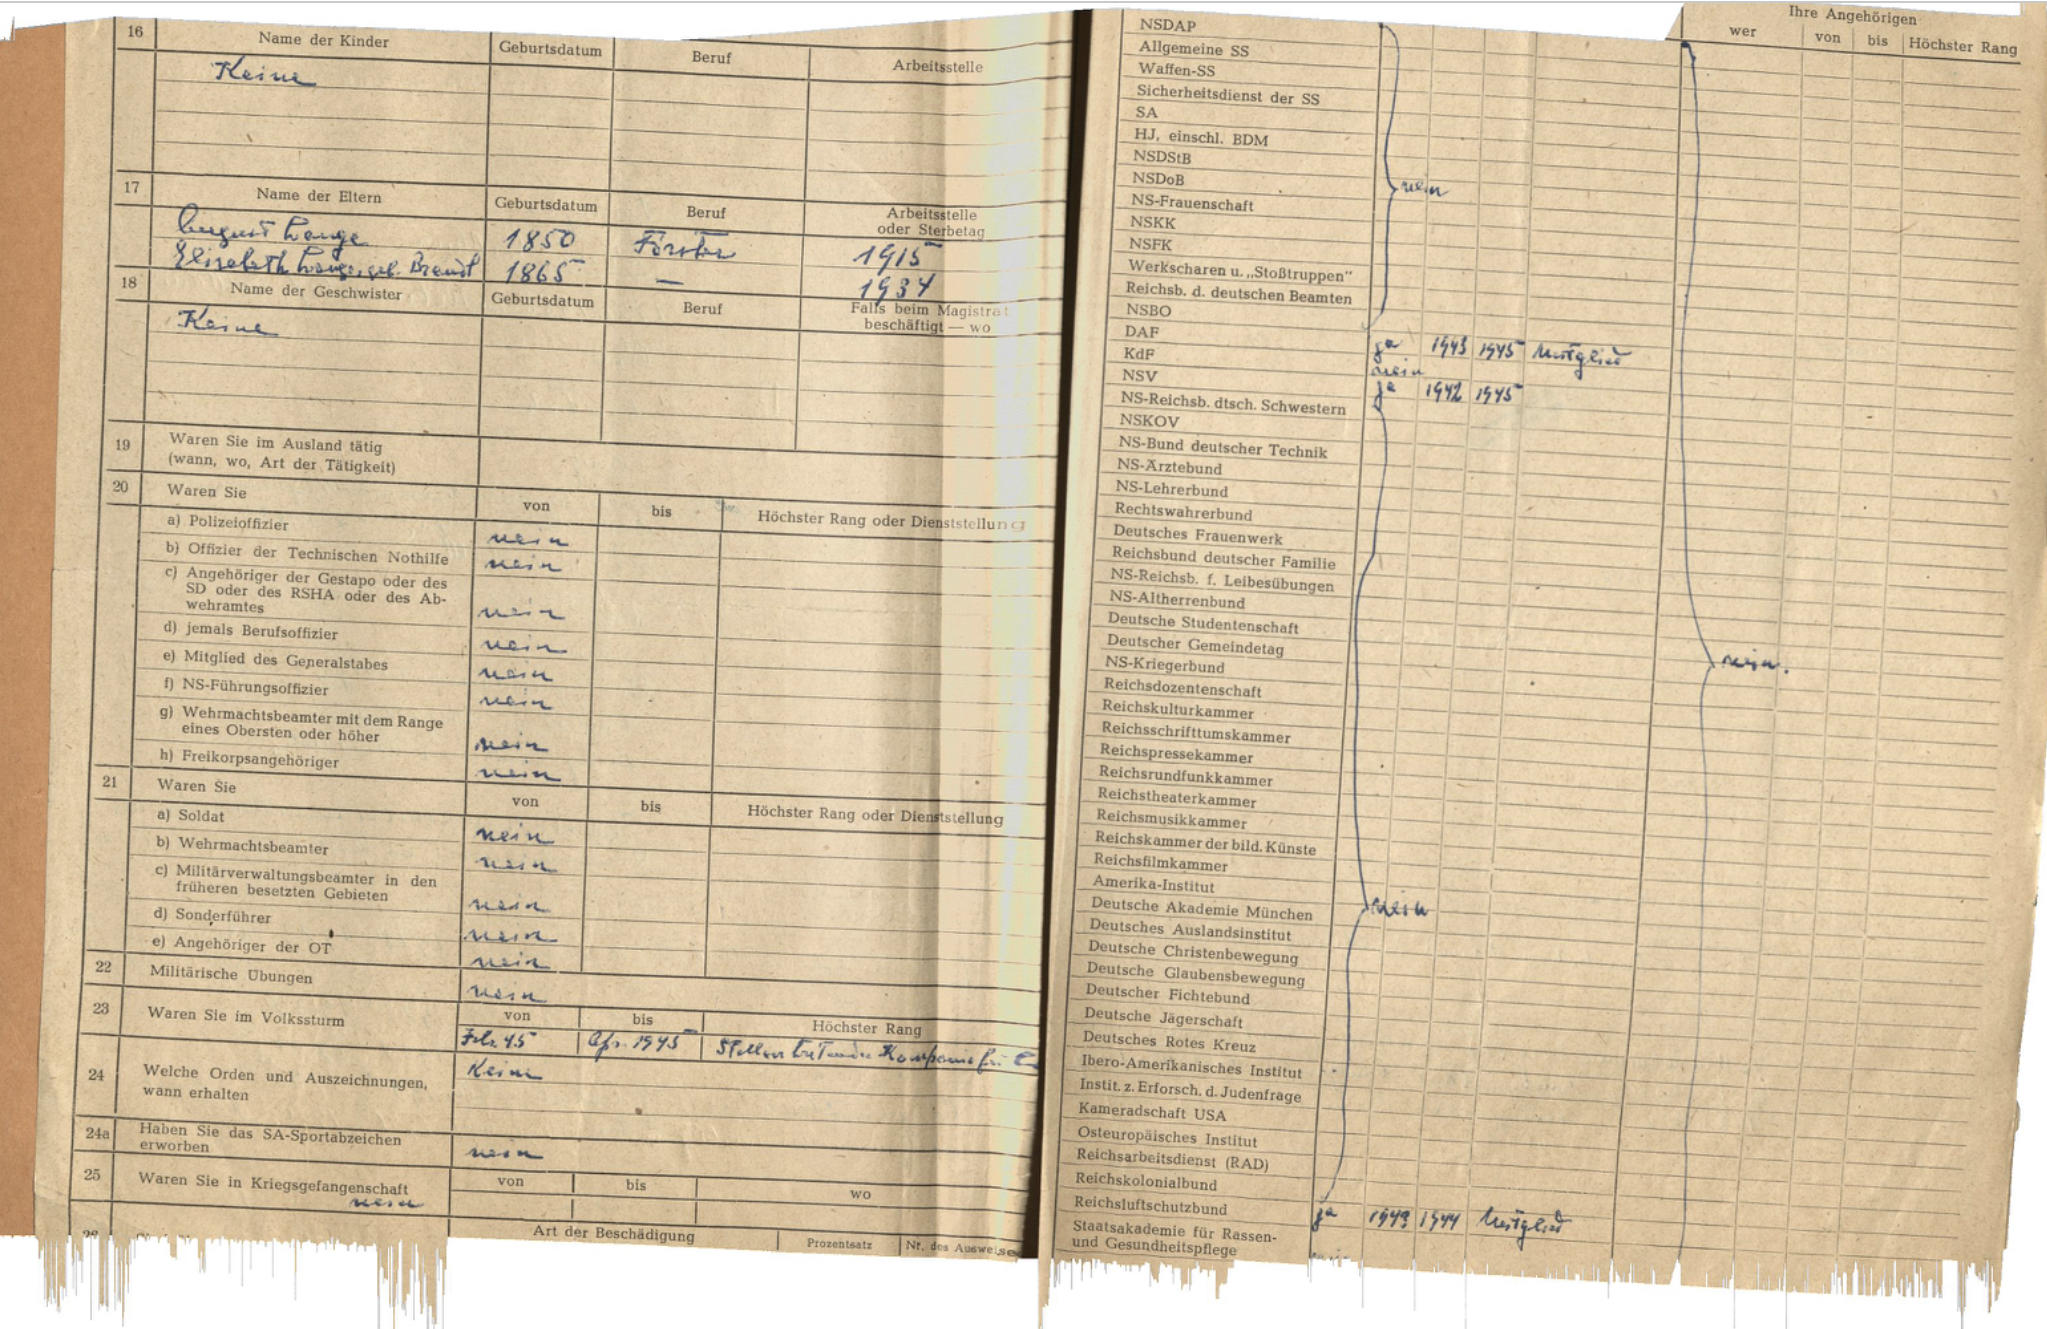 16 Name der Kinder Geburtsdatum Beruf Arbeitsstelle
Keine
17 Name der Eltern Geburtsdatum Beruf Arbeitsstelle
oder Sterbetag
August Lange 1850 Förster 1915
Elisabeth Lange, geb. Brandt 1865 — 1934
18 Name der Geschwister Geburtsdatum Beruf Falls beim Magistrat
beschäftigt — wo
Keine
19 Waren Sie im Ausland tätig
(wann, wo, Art der Tätigkeit)
20 Waren Sie von bis Höchster Rang oder Dienststellung
a) Polizeioffizier nein
b) Offizier der Technischen Nothilfe nein
c) Angehöriger der Gestapo oder des
SD oder des RSHA oder des Ab-
wehramtes nein
d) jemals Berufsoffizier nein
e) Mitglied des Generalstabes nein
f) NS-Führungsoffizier nein
g) Wehrmachtsbeamter mit dem Range
eines Obersten oder höher nein
h) Freikorpsangehöriger nein
21 Waren Sie von bis Höchster Rang oder Dienststellung
a) Soldat nein
b) Wehrmachtsbeamter nein
c) Militärverwaltungsbeamter in den
früheren besetzten Gebieten nein
d) Sonderführer nein
e) Angehöriger der OT nein
22 Militärische Übungen nein
23 Waren Sie im Volkssturm von bis Höchster Rang
Febr. 45 Apr. 1945 Stellvertretender
24 Welche Orden und Auszeichnungen, Keine
wann erhalten
24a Haben Sie das SA-Sportabzeichen
erworben nein
25 Waren Sie in Kriegsgefangenschaft von bis wo
nein
Art der Beschädigung Prozentsatz Nr. des Ausweises
Ihre Angehörigen
wer von bis Höchster Rang
NSDAP
Allgemeine SS
Waffen-SS
Sicherheitsdienst der SS
SA
HJ, einschl. BDM
NSDStB
NSDoB nein
NS-Frauenschaft
NSKK
NSFK
Werkscharen u. „Stoßtruppen"
Reichsb. d. deutschen Beamten
NSBO
DAF ja 1943 1945 Mitglied
KdF nein
NSV ja 1942 1945
NS-Reichsb. dtsch. Schwestern
NSKOV
NS-Bund deutscher Technik
NS-Ärztebund
NS-Lehrerbund
Rechtswahrerbund
Deutsches Frauenwerk
Reichsbund deutscher Familie
NS-Reichsb. f. Leibesübungen
NS-Altherrenbund
Deutsche Studentenschaft
Deutscher Gemeindetag
NS-Kriegerbund nein.
Reichsdozentenschaft
Reichskulturkammer
Reichsschrifttumskammer
Reichspressekammer
Reichsrundfunkkammer
Reichstheaterkammer
Reichsmusikkammer
Reichskammer der bild. Künste
Reichsfilmkammer
Amerika-Institut
Deutsche Akademie München nein
Deutsches Auslandsinstitut
Deutsche Christenbewegung
Deutsche Glaubensbewegung
Deutscher Fichtebund
Deutsche Jägerschaft
Deutsches Rotes Kreuz
Ibero-Amerikanisches Institut
Instit. z. Erforsch. d. Judenfrage
Kameradschaft USA
Osteuropäisches Institut
Reichsarbeitsdienst (RAD)
Reichskolonialbund
Reichsluftschutzbund ja 1943 1944 Mitglied
Staatsakademie für Rassen-
und Gesundheitspflege